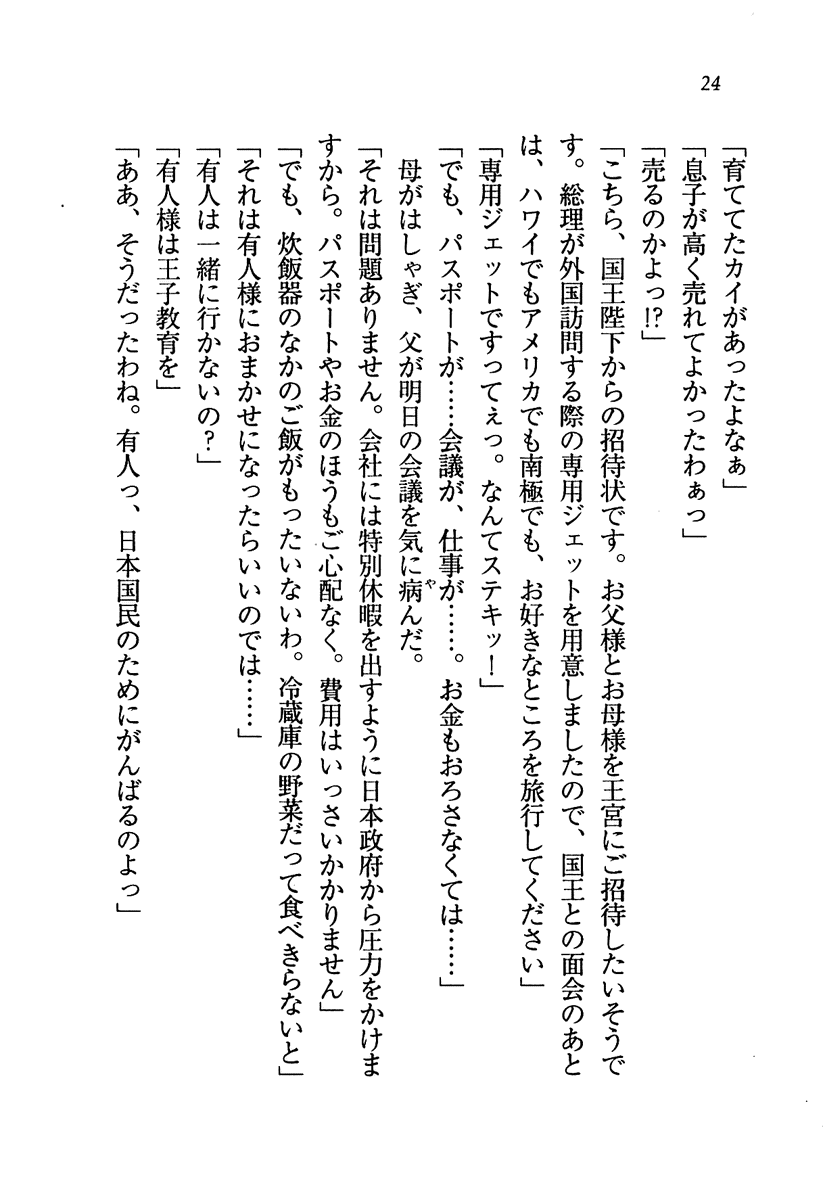 24
「育ててたカイがあったよなぁ」
「息子が高く売れてよかったわぁっ」
「売るのかよっ!?」
「こちら、国王陛下からの招待状です。お父様とお母様を王宮にご招待したいそうで
す。総理が外国訪問する際の専用ジェットを用意しましたので、国王との面会のあと
は、ハワイでもアメリカでも南極でも、お好きなところを旅行してください」
「専用ジェットですってぇっ。なんてステキッ！」
「でも、パスポートが……会議が、仕事が……。お金もおろさなくては……」
母がはしゃぎ、父が明日の会議を気に病んだ。
「それは問題ありません。会社には特別休暇を出すように日本政府から圧力をかけま
すから。パスポートやお金のほうもご心配なく。費用はいっさいかかりません」
「でも、炊飯器のなかのご飯がもったいないわ。冷蔵庫の野菜だって食べきらないと」
「それは有人様におまかせになったらいいのでは……」
「有人は一緒に行かないの？」
「有人様は王子教育を」
「ああ、そうだったわね。有人っ、日本国民のためにがんばるのよっ」